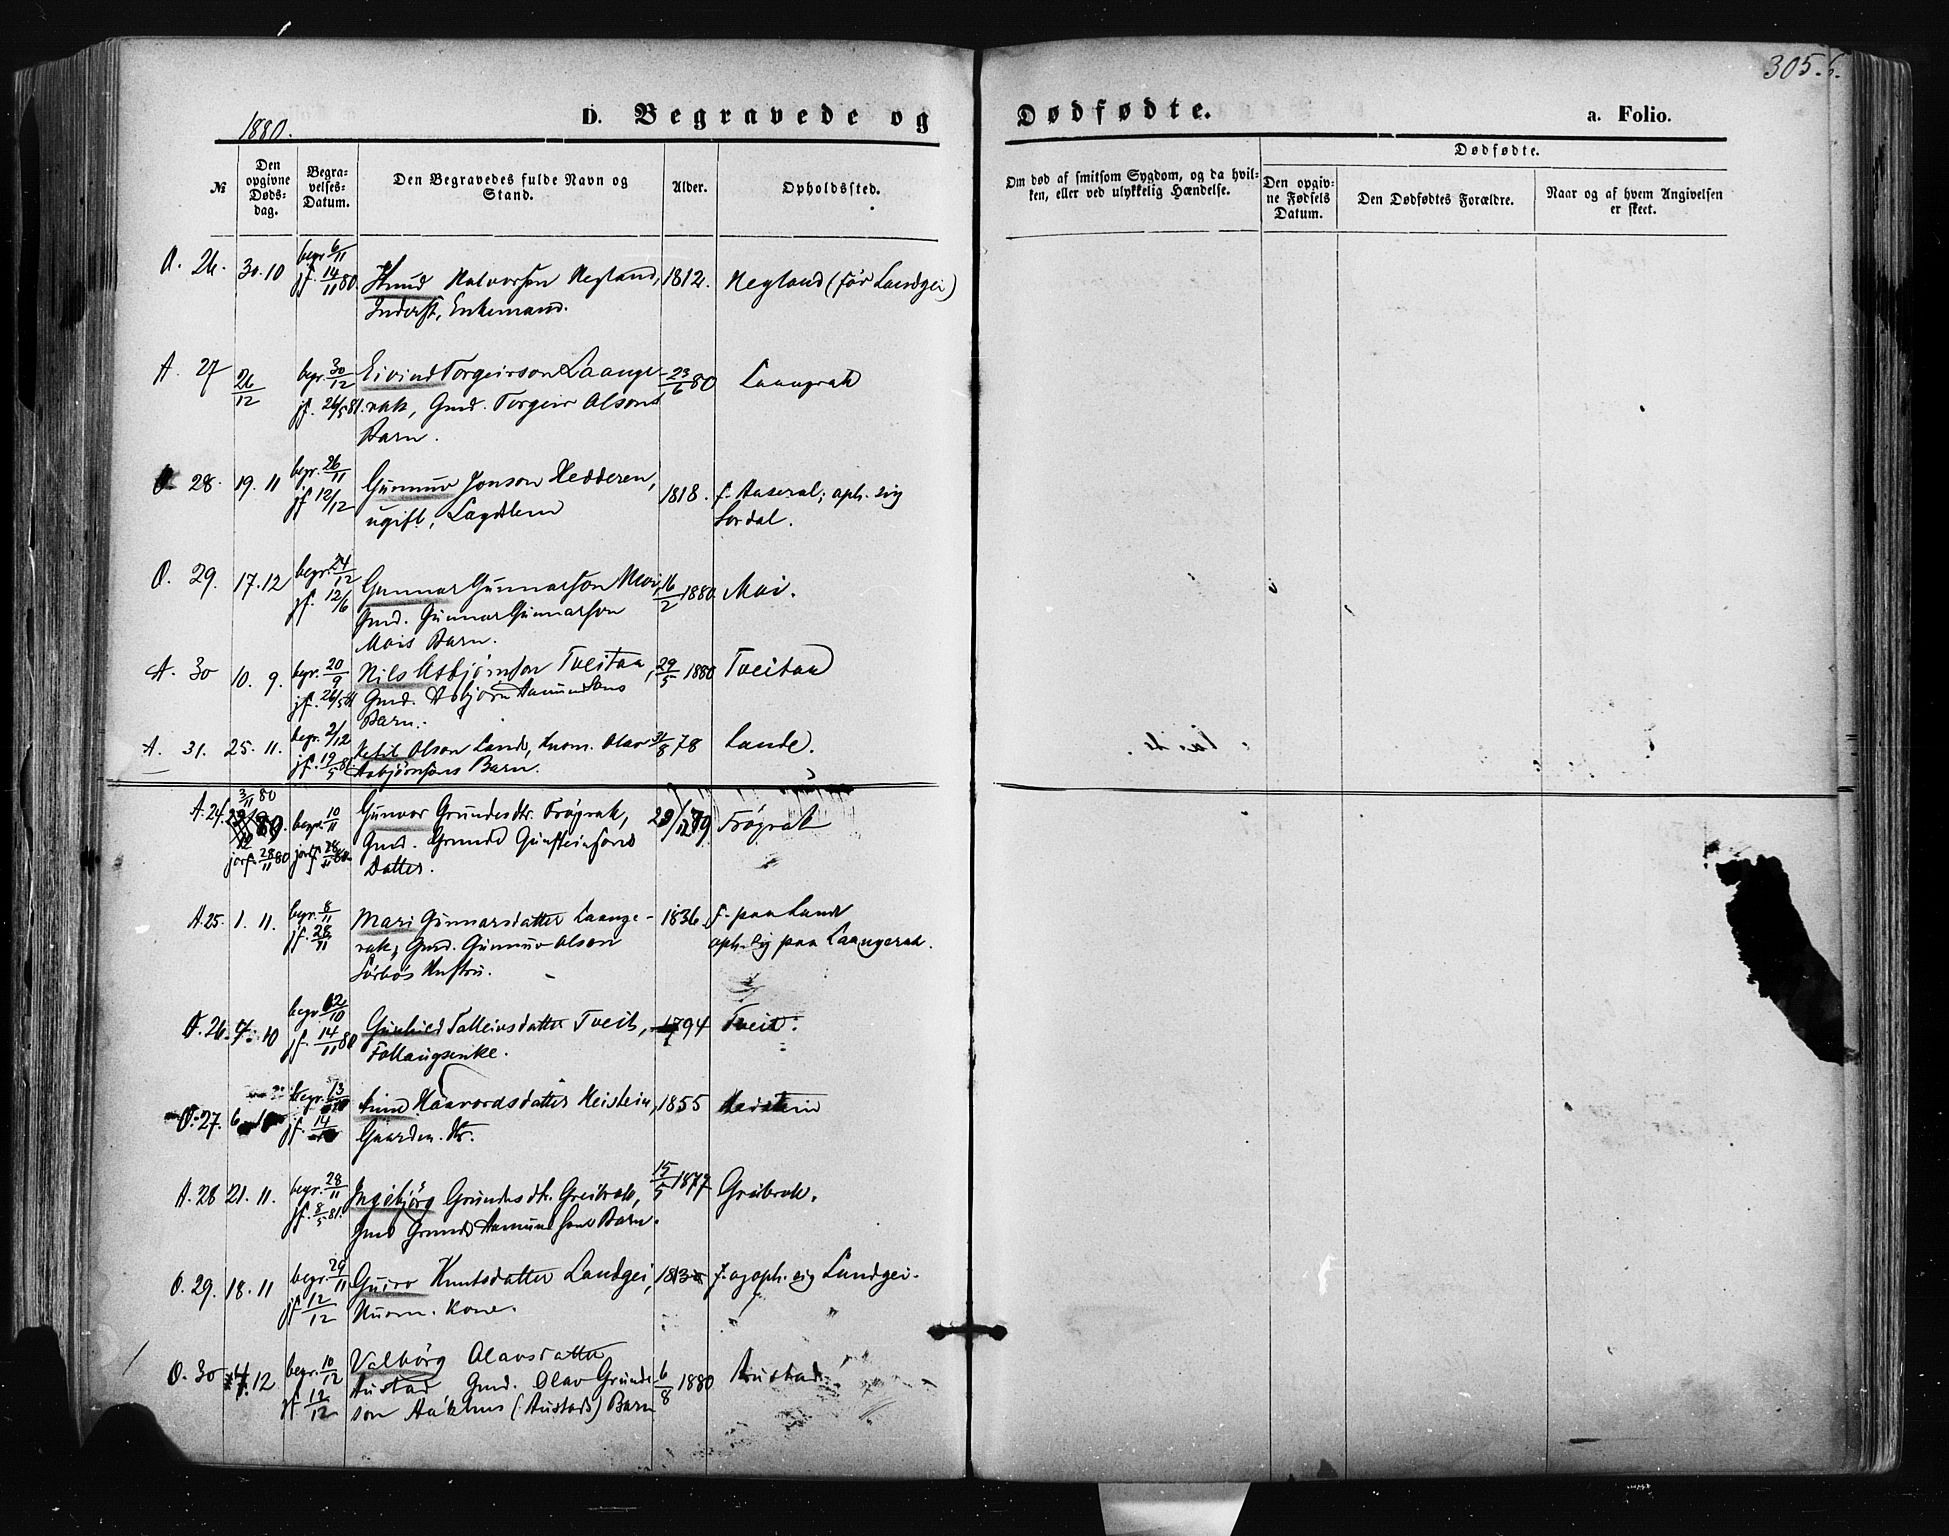 305.
1880.
D. Begravede og Dødfødte.
a. Folio.
№
Den opgivne Døds-dag.
Begra-velses-Datum.
Den Begravedes fulde Navn og Stand.
Alder.
Opholdssted.
Om død af smitsom Sygdom, og da hvil-ken, eller ved ulykkelig Hændelse.
Dødfødte.
Den opgiv-ne Fødsels Datum.
Den Dødfødtes Forældre.
Naar og af hvem Angivelsen er skeet.
O. 26. 30. 10 begr. 6/11 Knud Halvorson Hegland, 1812. Hegland (før Landgei)
jf. 14/11 80. Inderst, Enkemand.
A. 27 26/12 begr. 30/12 Eivind Torgeirson Laange- 23/6 80 Laangrak
jf. 26/5 81. rak, Gmd. Torgeir Olsons
Barn.
O. 28. 19. 11 begr. 26/11 Gunnuv Jonson Hedderen, 1818. f. Aaseral; oph. sig
jf 12/12 ugift, Lægdslem Lordal.
O. 29. 17. 12 begr. 24/12 Gunnar Gunnarson Moi, 16/2 1880 Moi.
jf. 12/6 Gmd. Gunnar Gunnarson
Mois Barn.
A. 30 10. 9. begr. 20/9 Nils Asbjørnson Tveitaa, 29/5 1880 Tveitaa
jf. 26/5 81 Gmd. Asbjørn Aamundsons
Barn.
A. 31. 25. 11. begr. 2/12 Ketil Olson Lande, Husm. Olav 31/8 78 Lande.
jf. 19/5 81. Asbjørnsons Barn.
A. 24. 3/11 80 begr. 10/11 Gunvor Grundesdtr. Frøyrak, 29/12 79 Frøyrak
jordf. 28/11 80 jordf. 28/11 80. Gmd. Grunde Gunsteinsons
Datter.
A. 25. 1. 11. begr. 8/11 Mari Gunnarsdatter Laange- 1836. f. paa Lande
jf. 28/11 rak, Gmd. Gunnuv Olson oph. sig paa Laangerak.
Sørbøs Hustru.
O. 26. 4. 10 begr. 12/10 Gunhild Talleivsdatter Tveit, 1794 Tveit.
jf. 14/11 80 Follaugsenke.
O. 27. 6 begr. 13 Haavordsdatter Heistein, 1855 Heistein
jf. 14 Gaarden. dtr.
A. 28 21. 11. begr. 28/11 Ingebjørg Grundesdtr. Greibrok, 15/5 1877 Greibrok.
jf. 8/5 81. Gmd Grunde Aamundsons Barn.
O. 29. 18. 11 begr. 29/11 Guro Knutsdatter Landgei, f. og oph. sig Landgei.
jf 12/12 Husm. Kone.
O. 30 4. 12 begr. 10/12 Valborg Olavsdatter 6/8 1880 Austad
jf 12/12 Austad Gmd. Olav Grunde-
son Aakhus (Austads) Barn